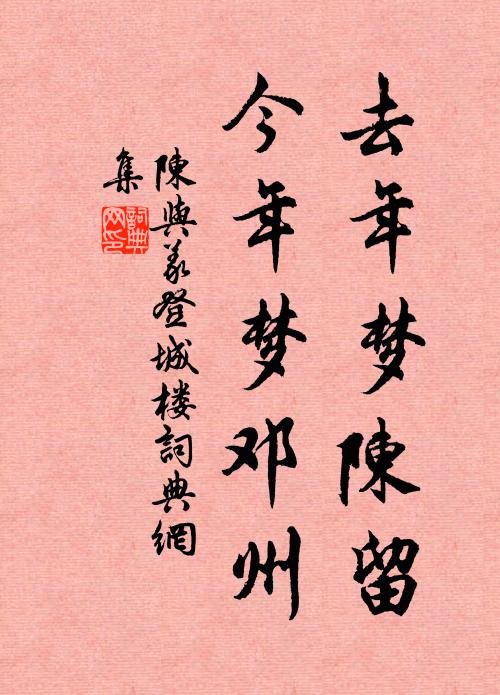 去年梦陳留
今年梦邓州
陳與义登城楼詞典網
集
詞典
网印